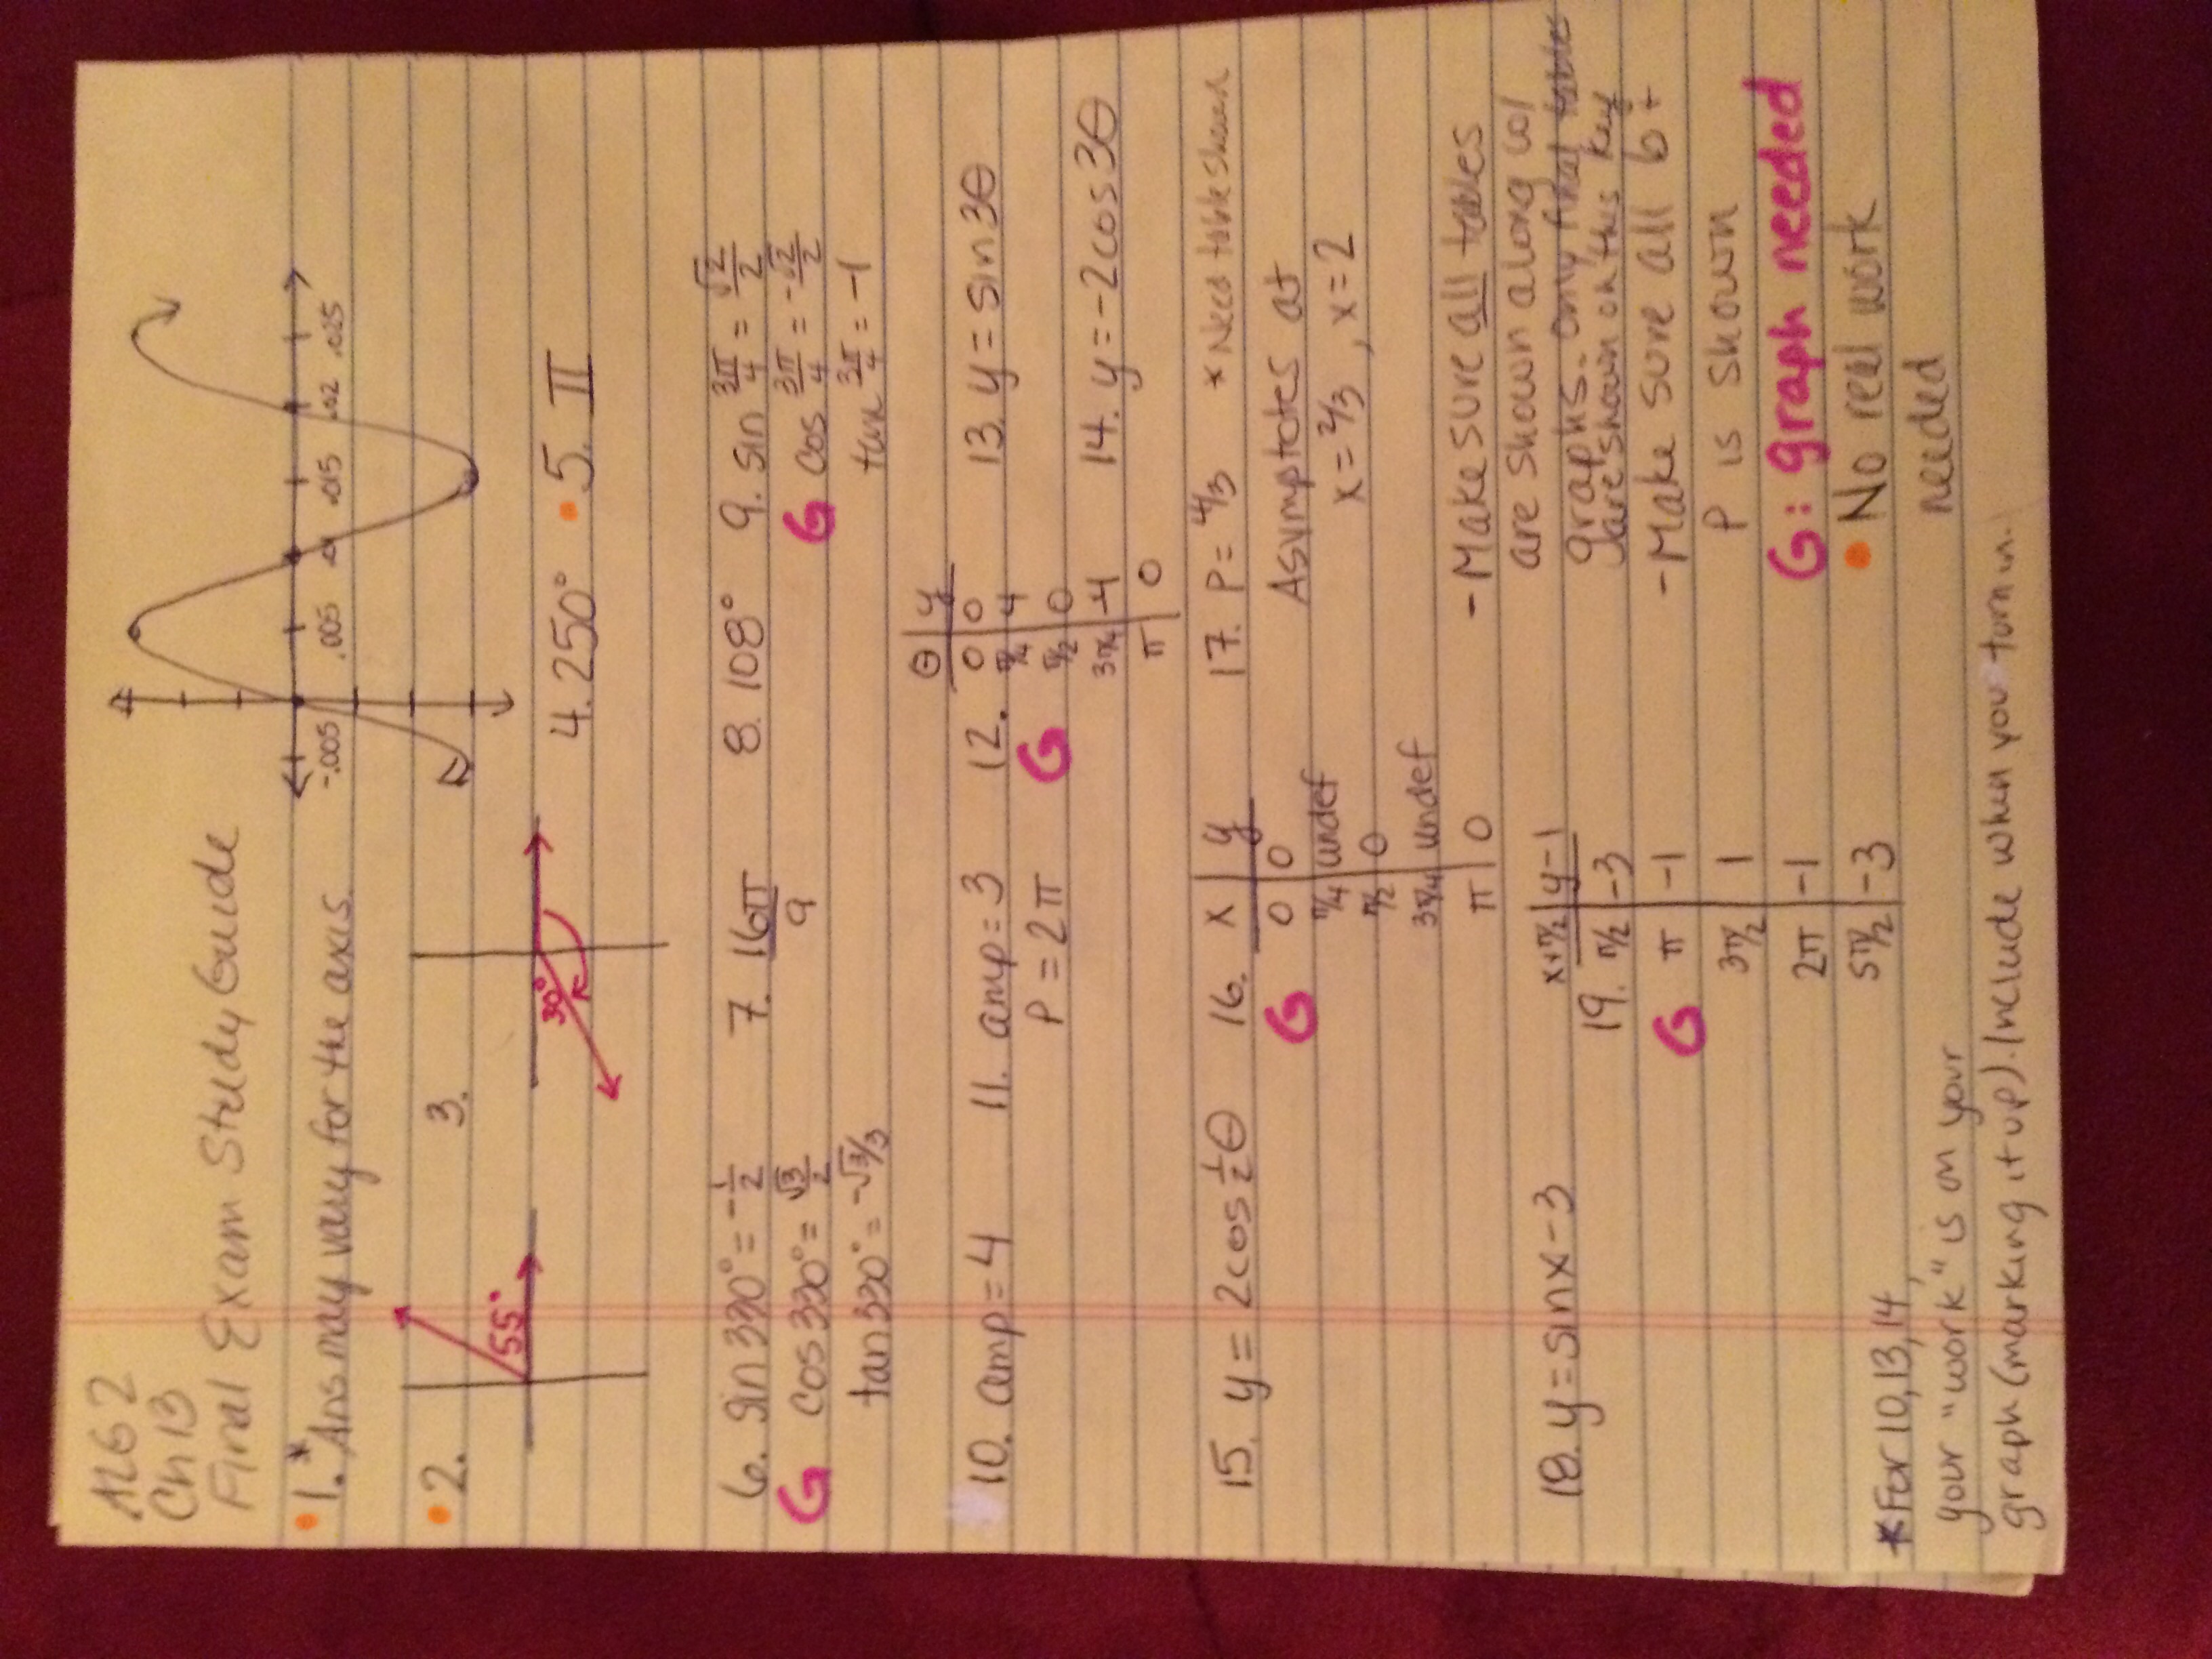 ALG 2
Ch 13
Final Exam Study Guide
• 1.* Ans may vary for the axis.
-.005 .005 .01 .015 .02 .025
• 2. 55°
3. 30°
4. 250°
• 5. II
6. sin 330° = -1/2
G cos 330° = √3/2
tan 330° = -√3/3
7. 16π/9
8. 108°
9. sin 3π/4 = √2/2
G cos 3π/4 = -√2/2
tan 3π/4 = -1
10. amp = 4
11. amp = 3
P = 2π
12. θ | y
G
0 | 0
π/4 | 4
π/2 | 0
3π/4 | -4
π | 0
13. y = sin 3θ
14. y = -2cos 3θ
15. y = 2cos ½θ
16. x | y
G
0 | 0
π/4 | undef
π/2 | 0
3π/4 | undef
π | 0
17. P = 4/3 * Need table shown
Asymptotes at
x = 2/3, x = 2
18. y = sin x - 3
x+π/2 | y-1
19. π/2 | -3
G π | -1
3π/2 | 1
2π | -1
5π/2 | -3
- Make sure all tables
are shown along w/
graphs. only final tables
are shown on this key
- Make sure all 6+
P is shown
G: graph needed
• No real work
needed
* For 10, 13, 14,
your "work" is on your
graph (marking it up). Include when you turn in.